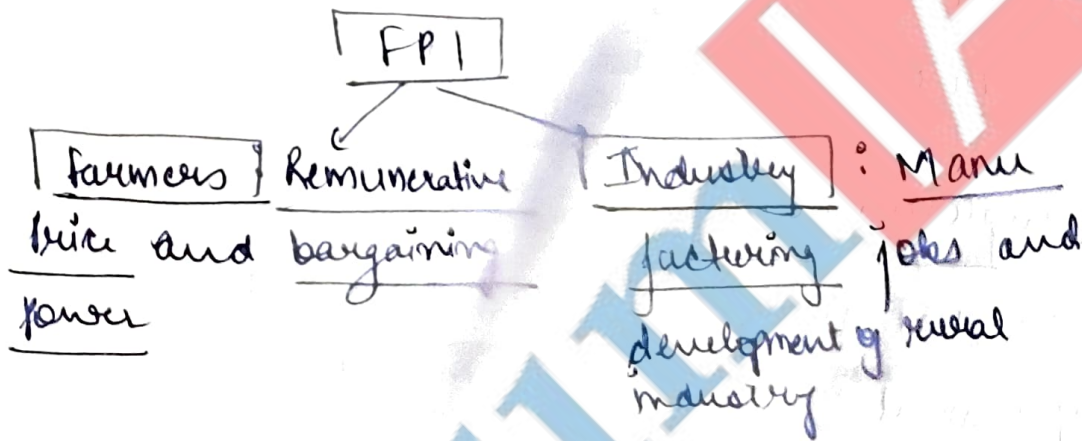 FPI
Farmers Remunerative
price and bargaining
power
Industry : Manu
facturing jobs and
development of rural
industry